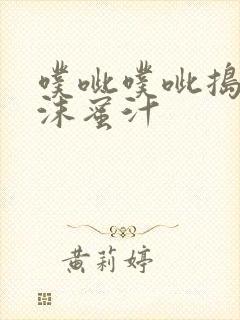 噗呲噗呲捣
沫蜜汁
黄莉婷